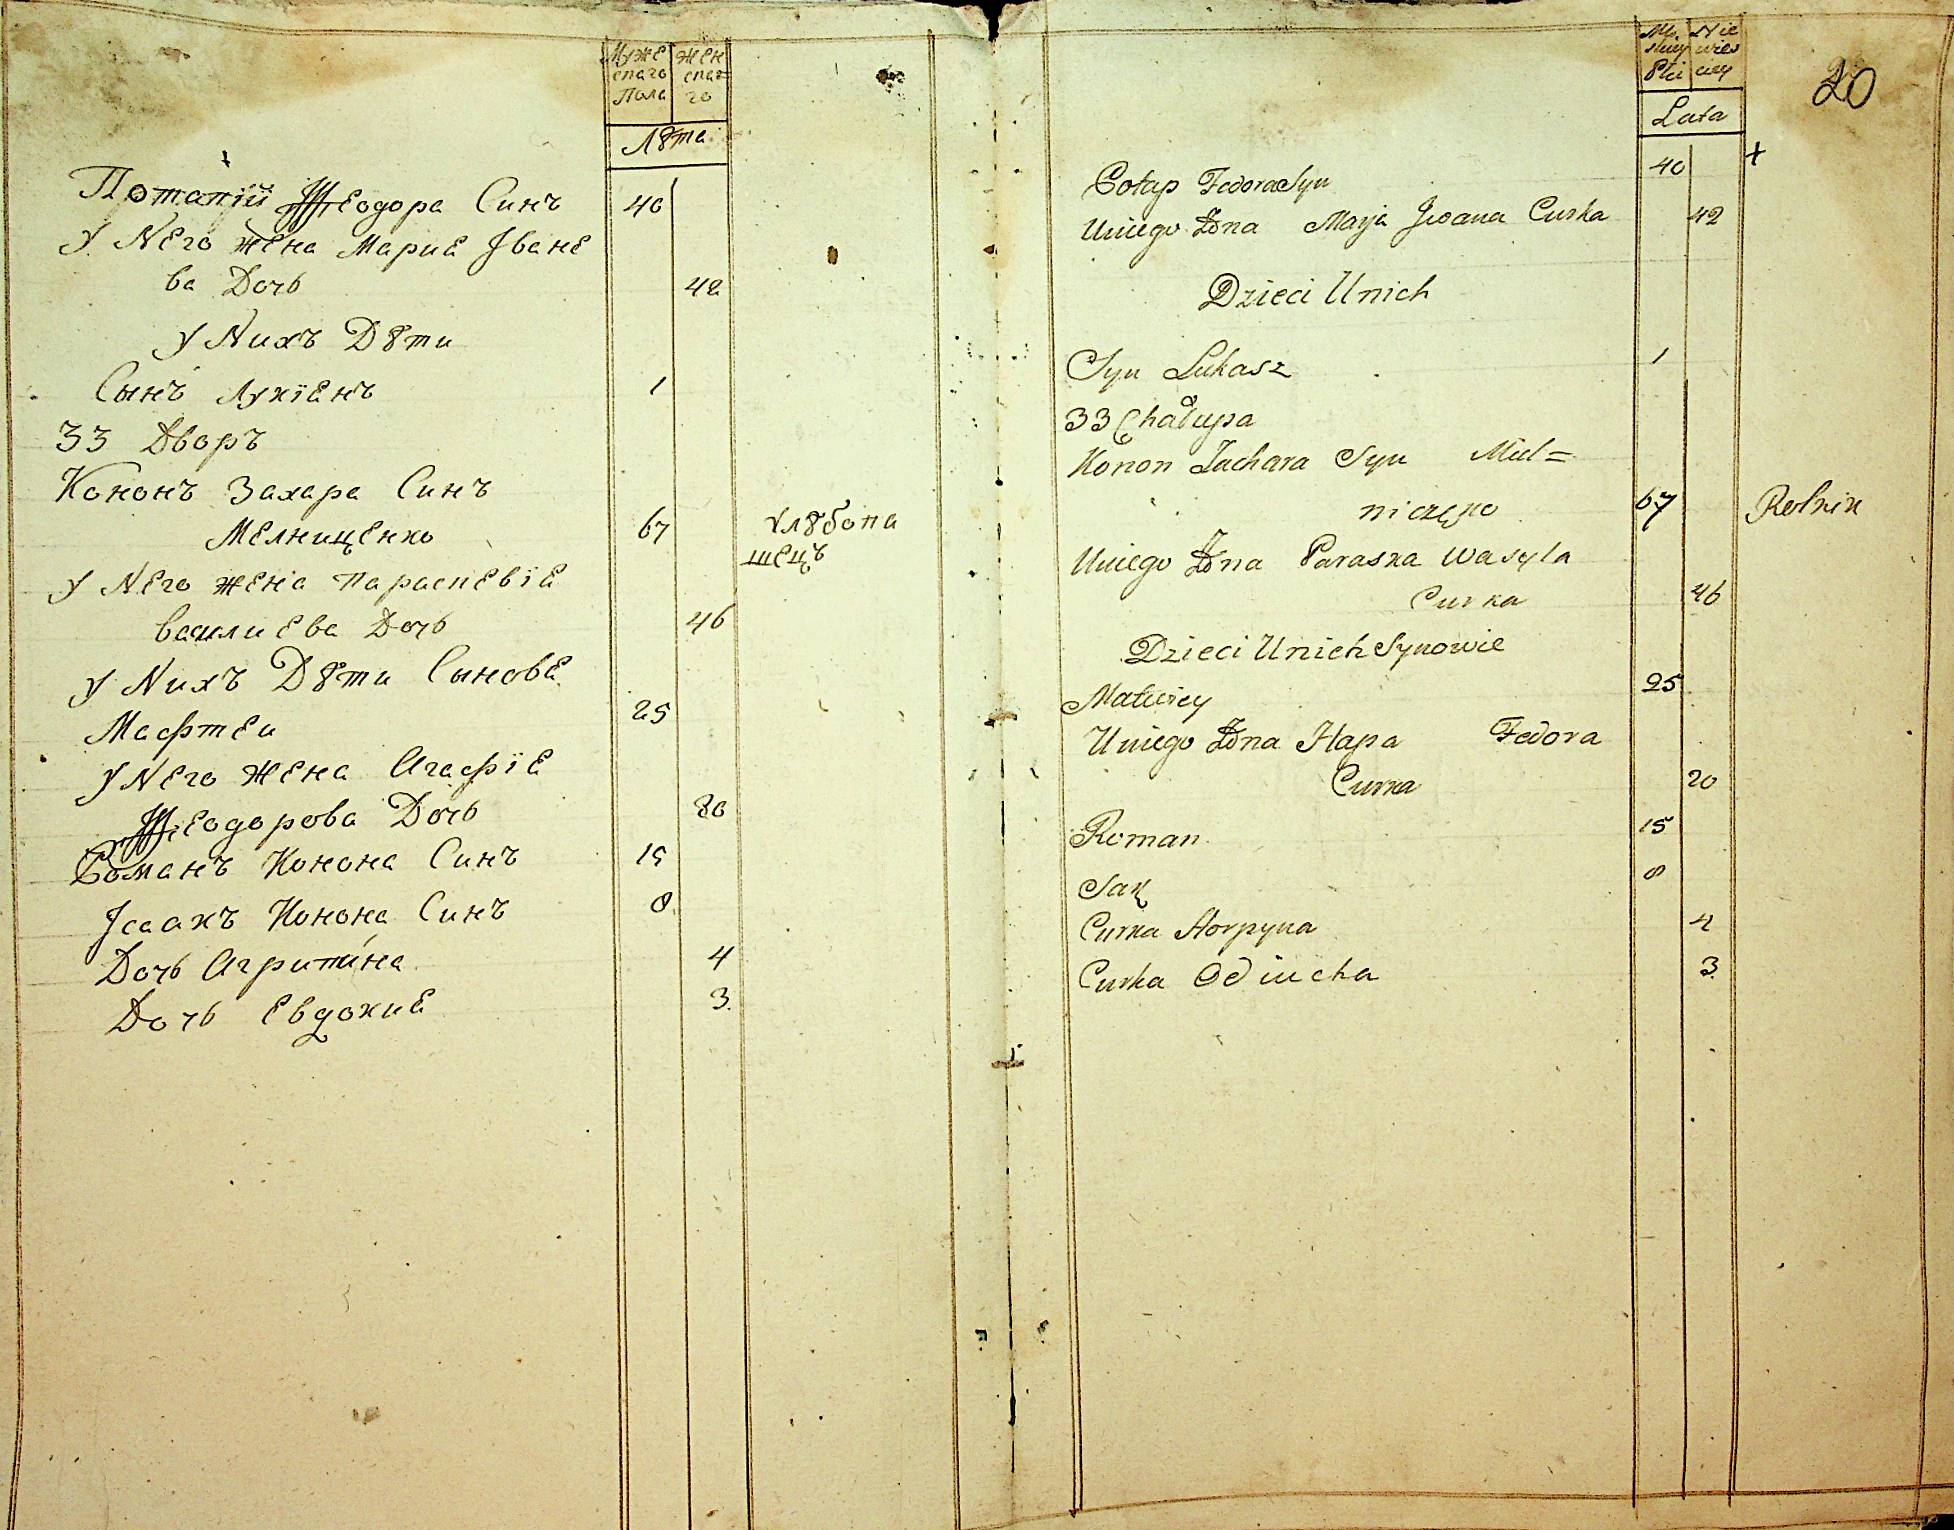 Муже
скаго
Пола
Жен
скаго
Лѣта
Потапій Ѳеодора Синъ 40
У Него жена Марие Іване
ва Дочь 42
У Нихъ Дѣти
Сынъ Лукїенъ 1
33 Дворъ
Кононъ Захара Синъ
Мелниценко 67 Хлѣбопа
шецъ
У Него жена Параскевїе
василиева Дочь 46
У Нихъ Дѣти Сынове
Мафтеи 25
У Него жена Агафїе
Ѳеодорова Дочь 20
Романъ Конона Синъ 15
Ісаакъ Конона Синъ 8
Дочь Агрипина 4
Дочь Евдокие 3
20
Mę
skiey
Płci
Nie
wies
ciey
Lata
Potap Fedora Syn 40
Uniego Żona Marja Jwana Curka 42
Dzieci Unich
Syn Lukasz 1
33 Chałupa
Konon Zachara Syn Mel=
niczęko 67 Rolnik
Uniego Żona Paraska Wasyla
Curka 46
Dzieci Unich Synowie
Matwiey 25
Uniego Żona Hapa Fedora
Curka 20
Roman 15
Sak 8
Curka Horpyna 4
Curka Odiucha 3